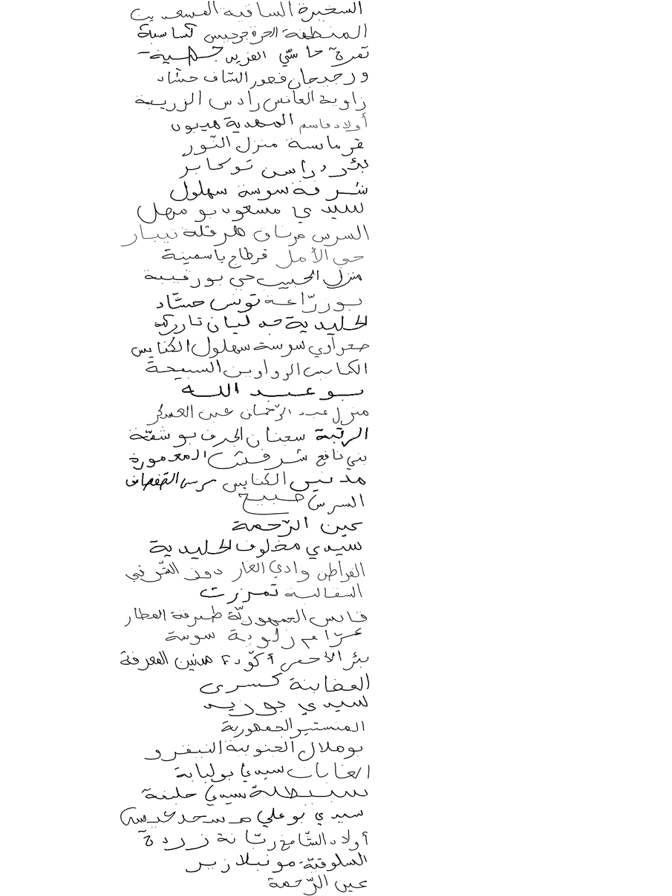 السخيرة الساقية القصعديب
المنطقة الحرة جرجيس كساسبة
تفرج حاسي الفريد جهينة
ورجدجان قمور السّاف حشاد
زاوية العانس رادس الزريبة
أولاد قاسم المهدية هيبون
قرماسة منزل النّور
بئر دراسن توكابر
شرفة سوسة سهلول
سيدي مسعود بومهل
السرس مرناق هرقلة نيبار
حي الأمل قرطاج ياسمينة
منزل الحبيب حي بورقيبة
بوزرّاعة تونس حشّاد
الخليدية جدليان تاركة
صحراوي سوسة سهلول الكنايس
الكاب الرواوين السبيخة
بوعبد الله
منزل عبد الرّحمان عين العسكر
الرتبة سجنان الجرف بوشقّة
بني نافع شرفش المعمورة
مدنين الكنايس سرس القصاف
السرس خبيج
عين الرّحمة
سيدي مخلوف الخليدية
القراطن وادي الغار دوز الشّرقي
السقالبة تمزرت
قابس الجمهوريّة طبرقة العطار
عرّام زاوية سوسة
بئر الأحمر أكّودة مدنين المعرفة
العقابنة كسرى
سيدي بوزيد
المنستير الجمهورية
بوهلال الجنوبية النبغرو
الغابات سيدي بولبابة
سبيطلة سيدي خليفة
سيدي بوعلي مسجد عيسى
أولاد الشّامخ رتّانة زردة
السلوقيّة مونبلازير
عين الرّحمة